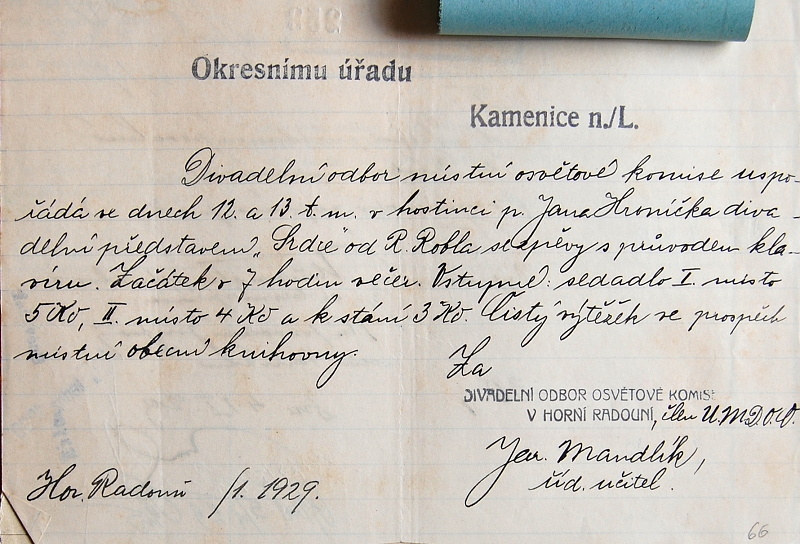 Okresnímu úřadu
Kamenice n./L.
Divadelní odbor místní osvětové komise uspo-
řádá ve dnech 12. a 13. t. m. v hostinci p. Jana Hroníčka diva-
delní představení „Srdce" od R. Robla se zpěvy s průvodem kla-
víru. Začátek v 7 hodin večer. Vstupné: sedadlo I. místo
5 Kč, II. místo 4 Kč a k stání 3 Kč. Čistý výtěžek ve prospěch
místní obecní knihovny.
Za
DIVADELNÍ ODBOR OSVĚTOVÉ KOMISE
V HORNÍ RADOUNI, člen Ú.M.D.O.Č.
Jar. Mandlík,
říd. učitel.
Hor. Radouň /1. 1929.
66